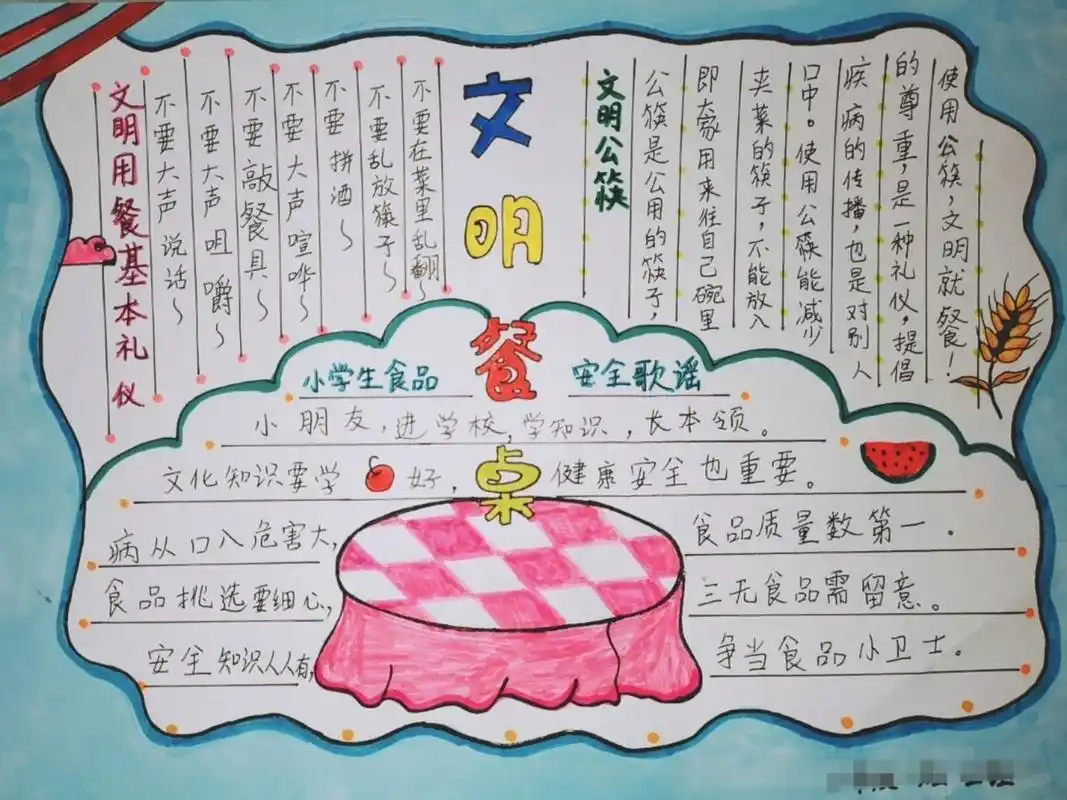 文明餐桌
文明用餐基本礼仪
不要大声说话~
不要大声咀嚼~
不要敲餐具~
不要大声喧哗~
不要拼酒~
不要乱放筷子~
不要在菜里乱翻~
文明公筷
公筷是公用的筷子,
即大家用来往自己碗里
夹菜的筷子,不能放入
口中。使用公筷能减少
疾病的传播,也是对别人
的尊重,是一种礼仪,提倡
使用公筷,文明就餐!
小学生食品 安全歌谣
小朋友,进学校,学知识,长本领。
文化知识要学好,健康安全也重要。
病从口入危害大,食品质量数第一.
食品挑选要细心,三无食品需留意。
安全知识人人有,争当食品小卫士。